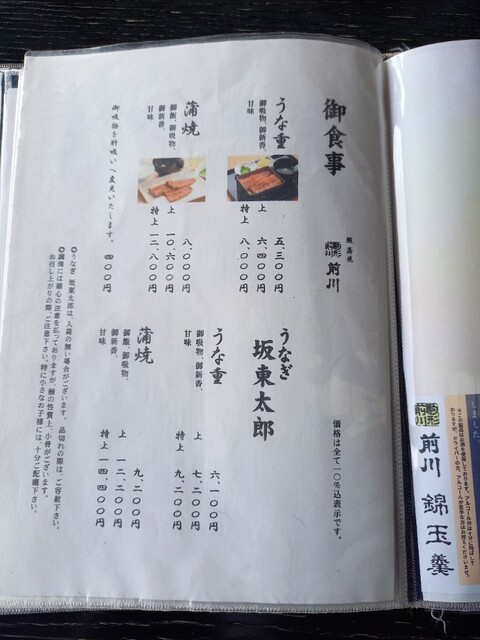 御食事
鰻蒲焼
前川
うな重
御吸物、御新香、
甘味
五、三〇〇円
上 六、四〇〇円
特上 八、〇〇〇円
蒲焼
御飯、御吸物、
御新香、
甘味
八、〇〇〇円
上 一〇、六〇〇円
特上 一二、八〇〇円
御吸物を肝吸いへ変えいたします。 四〇〇円
価格は全て一〇%込表示です。
うなぎ
坂東太郎
うな重
御吸物、御新香、
甘味
六、一〇〇円
上 七、二〇〇円
特上 九、二〇〇円
蒲焼
御飯、御吸物、
御新香、
甘味
九、二〇〇円
上 一二、二〇〇円
特上 一四、四〇〇円
◎うなぎ 坂東太郎は、入荷の無い場合がございます。品切れの際は、ご容赦下さい。
◎調理には細心の注意を払っておりますが、鰻の性質上、小骨がございます。
お召し上がりの際、ご注意下さい。特に小さなお子様には、十分ご配慮下さい。
しました。
駒形
前川
前川 錦玉羹